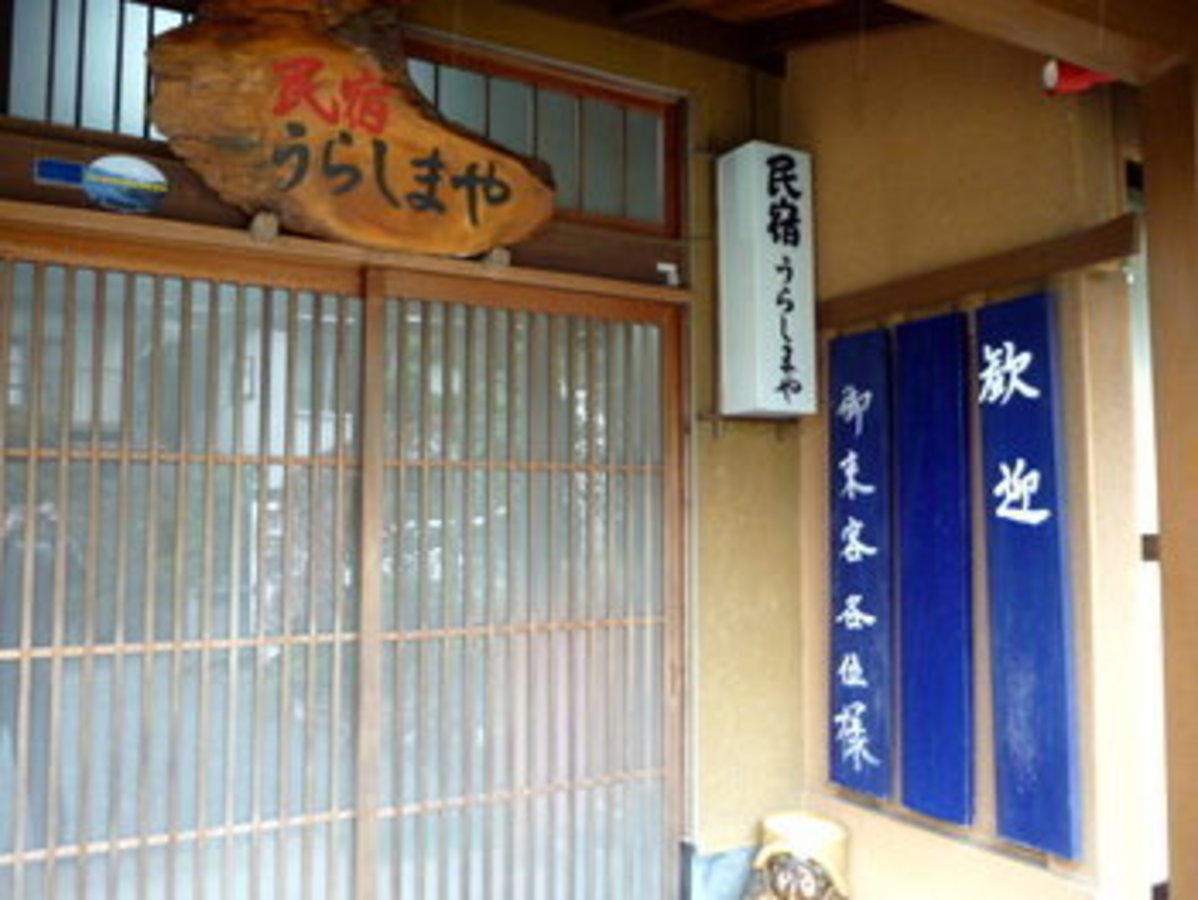 民宿
うらしまや
民宿 うらしまや
歓迎
御来客各位様